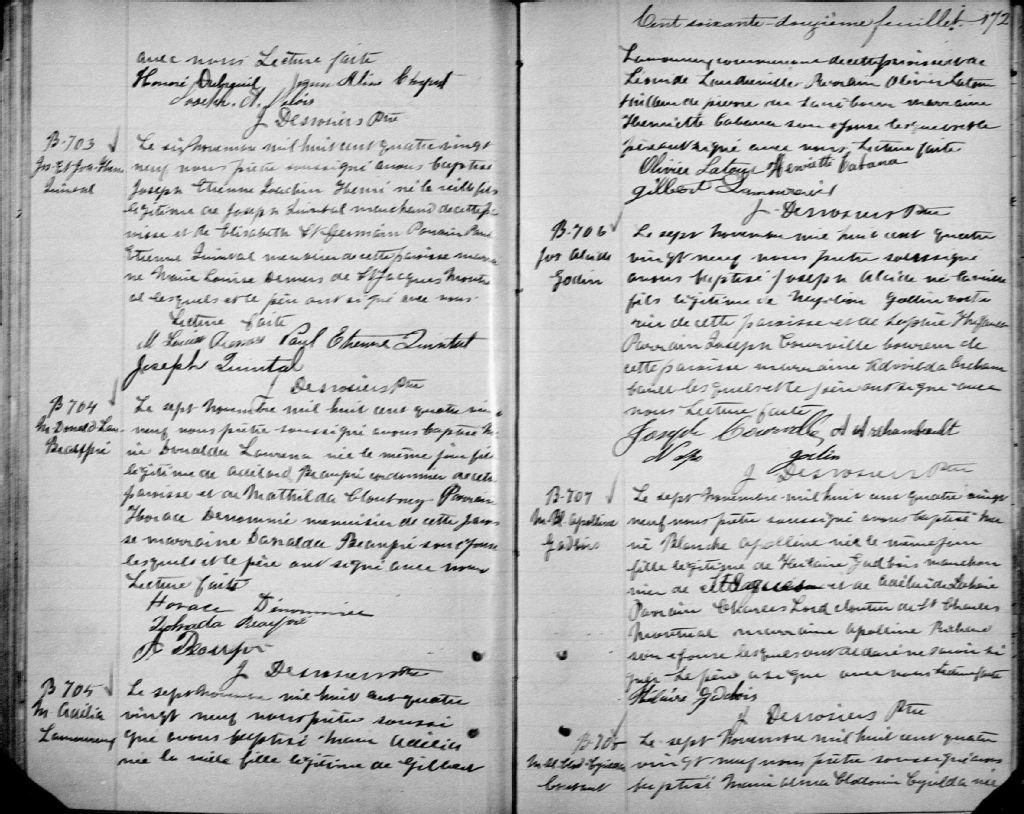 avec nous Lecture faite
Honoré Dubreuil
Joseph A.
J Desrosiers Ptre
B-703
Jos. Et. Joa. Henri
Quintal
Le six novembre mil huit cent quatre vingt
neuf nous prêtre soussigné avons baptisé
Joseph Etienne Joachim Henri né la veille fils
légitime de Joseph Quintal marchand de cette pa
roisse et de Elisabeth St Germain Parrain Paul
Etienne Quintal menuisier de cette paroisse marrai
ne Marie Louise Demers de St Jacques Montré
al lesquels et le père ont signé avec nous
Lecture faite
Paul Etienne Quintal
Joseph Quintal
J Desrosiers Ptre
B 704
M. Donalda Lau-
Beaupré
Le sept novembre mil huit cent quatre vingt
neuf nous prêtre soussigné avons baptisé Ma
rie Donalda Laurena née le même jour fille
légitime de Adélard Beaupré cordonnier de cette
paroisse et de Mathilda Parrain
Horace Dénommé menuisier de cette parois
se marraine Beaupré son épouse
lesquels et le père ont signé avec nous
Lecture faite
Horace Dénommée
Beaupré
A Beaupré
J Desrosiers Ptre
B 705
M. Adélia
Lamoureux
Le sept novembre mil huit cent quatre
vingt neuf nous prêtre soussi
gné avons baptisé Marie Adélia
née la veille fille légitime de Gilbert
Cent soixante-douzième feuillet. 172
Lamoureux de cette paroisse et de
Parrain Olivier Latour
tailleur de pierre marraine
Henriette Cabana son épouse lesquels et le
père ont signé avec nous Lecture faite
Olivier Latour Henriette Cabana
Gilbert Lamoureux
J. Desrosiers Ptre
B-706
Jos Alcide
Godin
Le sept novembre mil huit cent quatre
vingt neuf nous prêtre soussigné
avons baptisé Joseph Alcide né la veille
fils légitime de Napoléon Godin
de cette paroisse et de
Parrain Joseph Courville de
cette paroisse marraine Archam
bault lesquels et le père ont signé avec
nous Lecture faite
Joseph Courville A Archambault
Nap Godin
J Desrosiers Ptre
B-707
M. Bl. Apolline
Gadbois
Le sept novembre mil huit cent quatre vingt
neuf nous prêtre soussigné avons baptisé Ma
rie Blanche Apolline née le même jour
fille légitime de Hilaire Gadbois
de et de Adélaïde Lahaie
Parrain Charles Lord cloutier de St Charles
Montréal marraine Apolline
son épouse lesquels ont déclaré ne savoir si
gner. Le père a signé avec nous Lecture faite
Hilaire Gadbois
J. Desrosiers Ptre
Le sept novembre mil huit cent quatre
vingt neuf nous prêtre soussigné avons
baptisé Marie Alma née